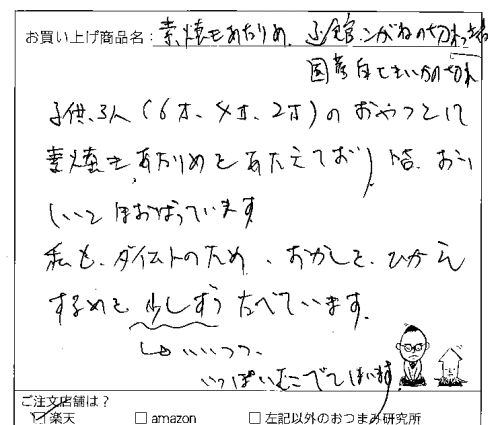 お買い上げ商品名：素焼きあたりめ、函館こがねの切れっ端
国産白するめいかの切れ
子供、3人（6才、4才、2才）のおやつとして
素焼きあたりめをあたえており、皆、おい
しいとほおばっています
私も、ダイエットのため、おかしを、ひかえ
するめを少しずつたべています。
↳いいつつ、
いっぱいむこでてはいます
ご注文店舗は？
☑楽天 □amazon □左記以外のおつまみ研究所